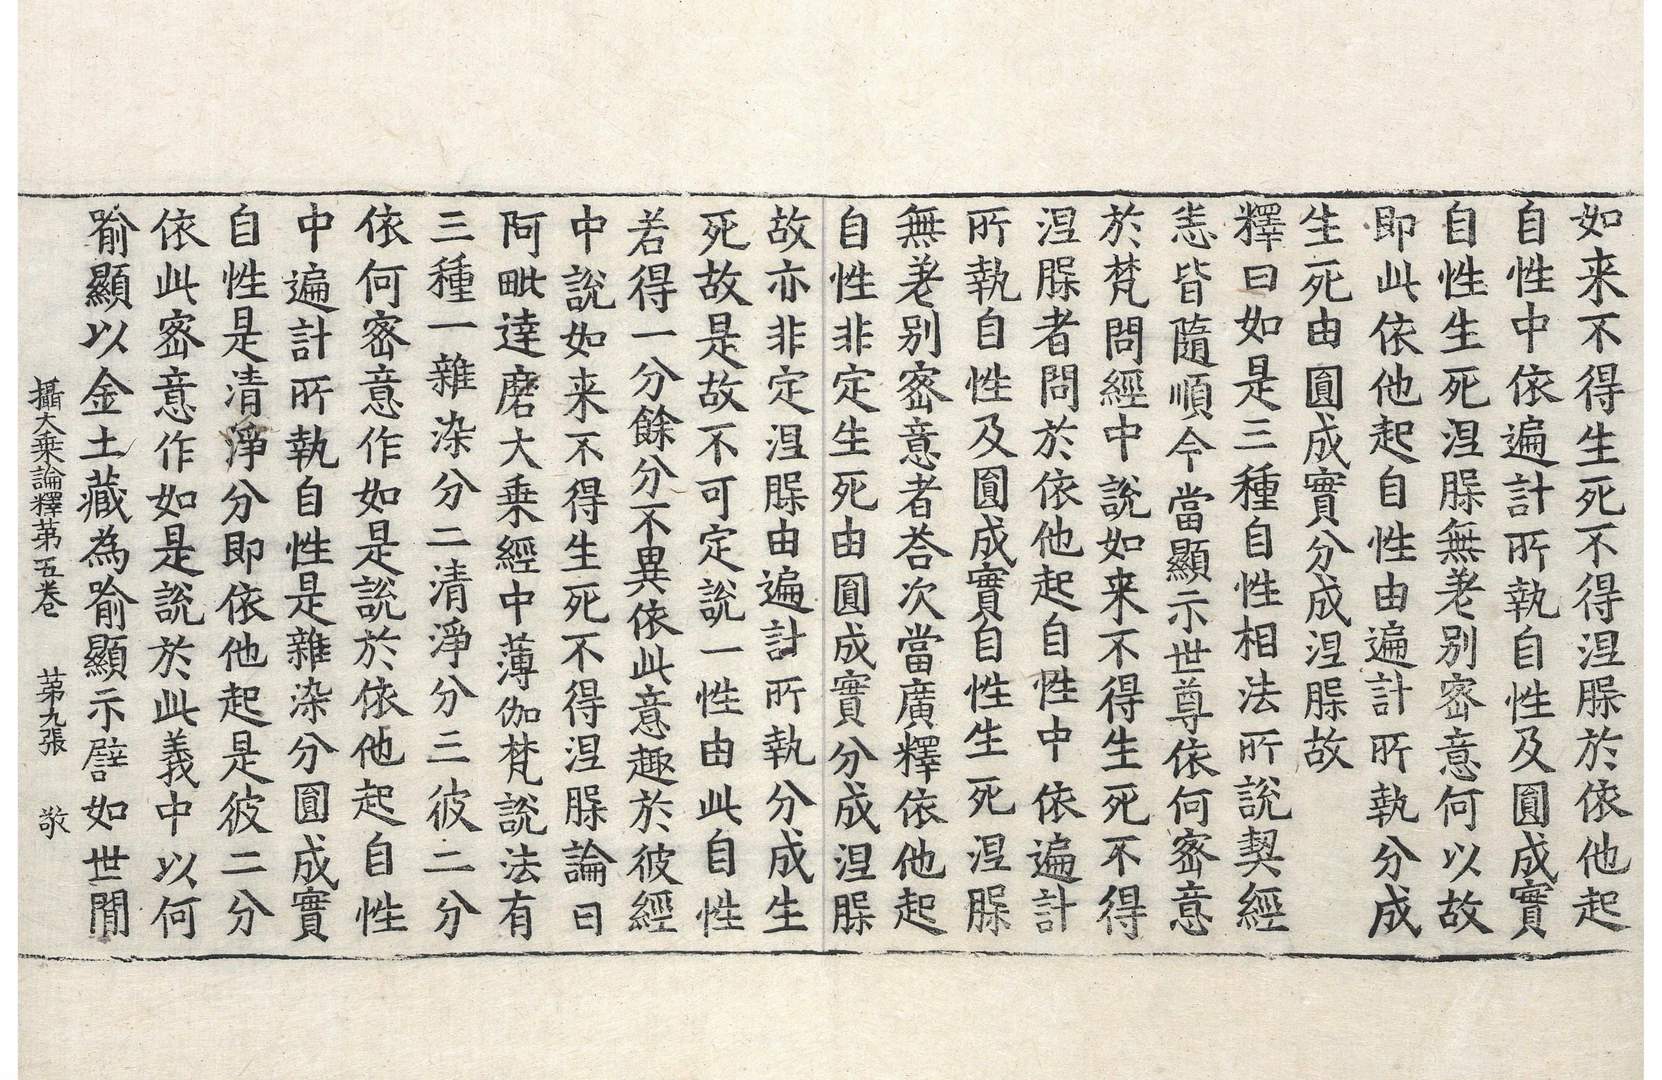 如来不得生死不得涅槃於依他起
自性中依遍計所執自性及圓成實
自性生死涅槃無差别密意何以故
即此依他起自性由遍計所執分成
生死由圓成實分成涅槃故
釋曰如是三種自性相法所說契經
悉皆隨順今當顯示世尊依何密意
於梵問經中說如来不得生死不得
涅槃者問於依他起自性中依遍計
所執自性及圓成實自性生死涅槃
無差别密意者荅次當廣釋依他起
自性非定生死由圓成實分成涅槃
故亦非定涅槃由遍計所執分成生
死故是故不可定說一性由此自性
若得一分餘分不異依此意趣於彼經
中說如来不得生死不得涅槃論曰
阿毗達磨大乗經中薄伽梵說法有
三種一雜染分二清淨分三彼二分
依何密意作如是說於依他起自性
中遍計所執自性是雜染分圓成實
自性是清淨分即依他起是彼二分
依此密意作如是說於此義中以何
喻顯以金土藏為喻顯示譬如世間
攝大乗論釋苐五卷 苐九張 敬